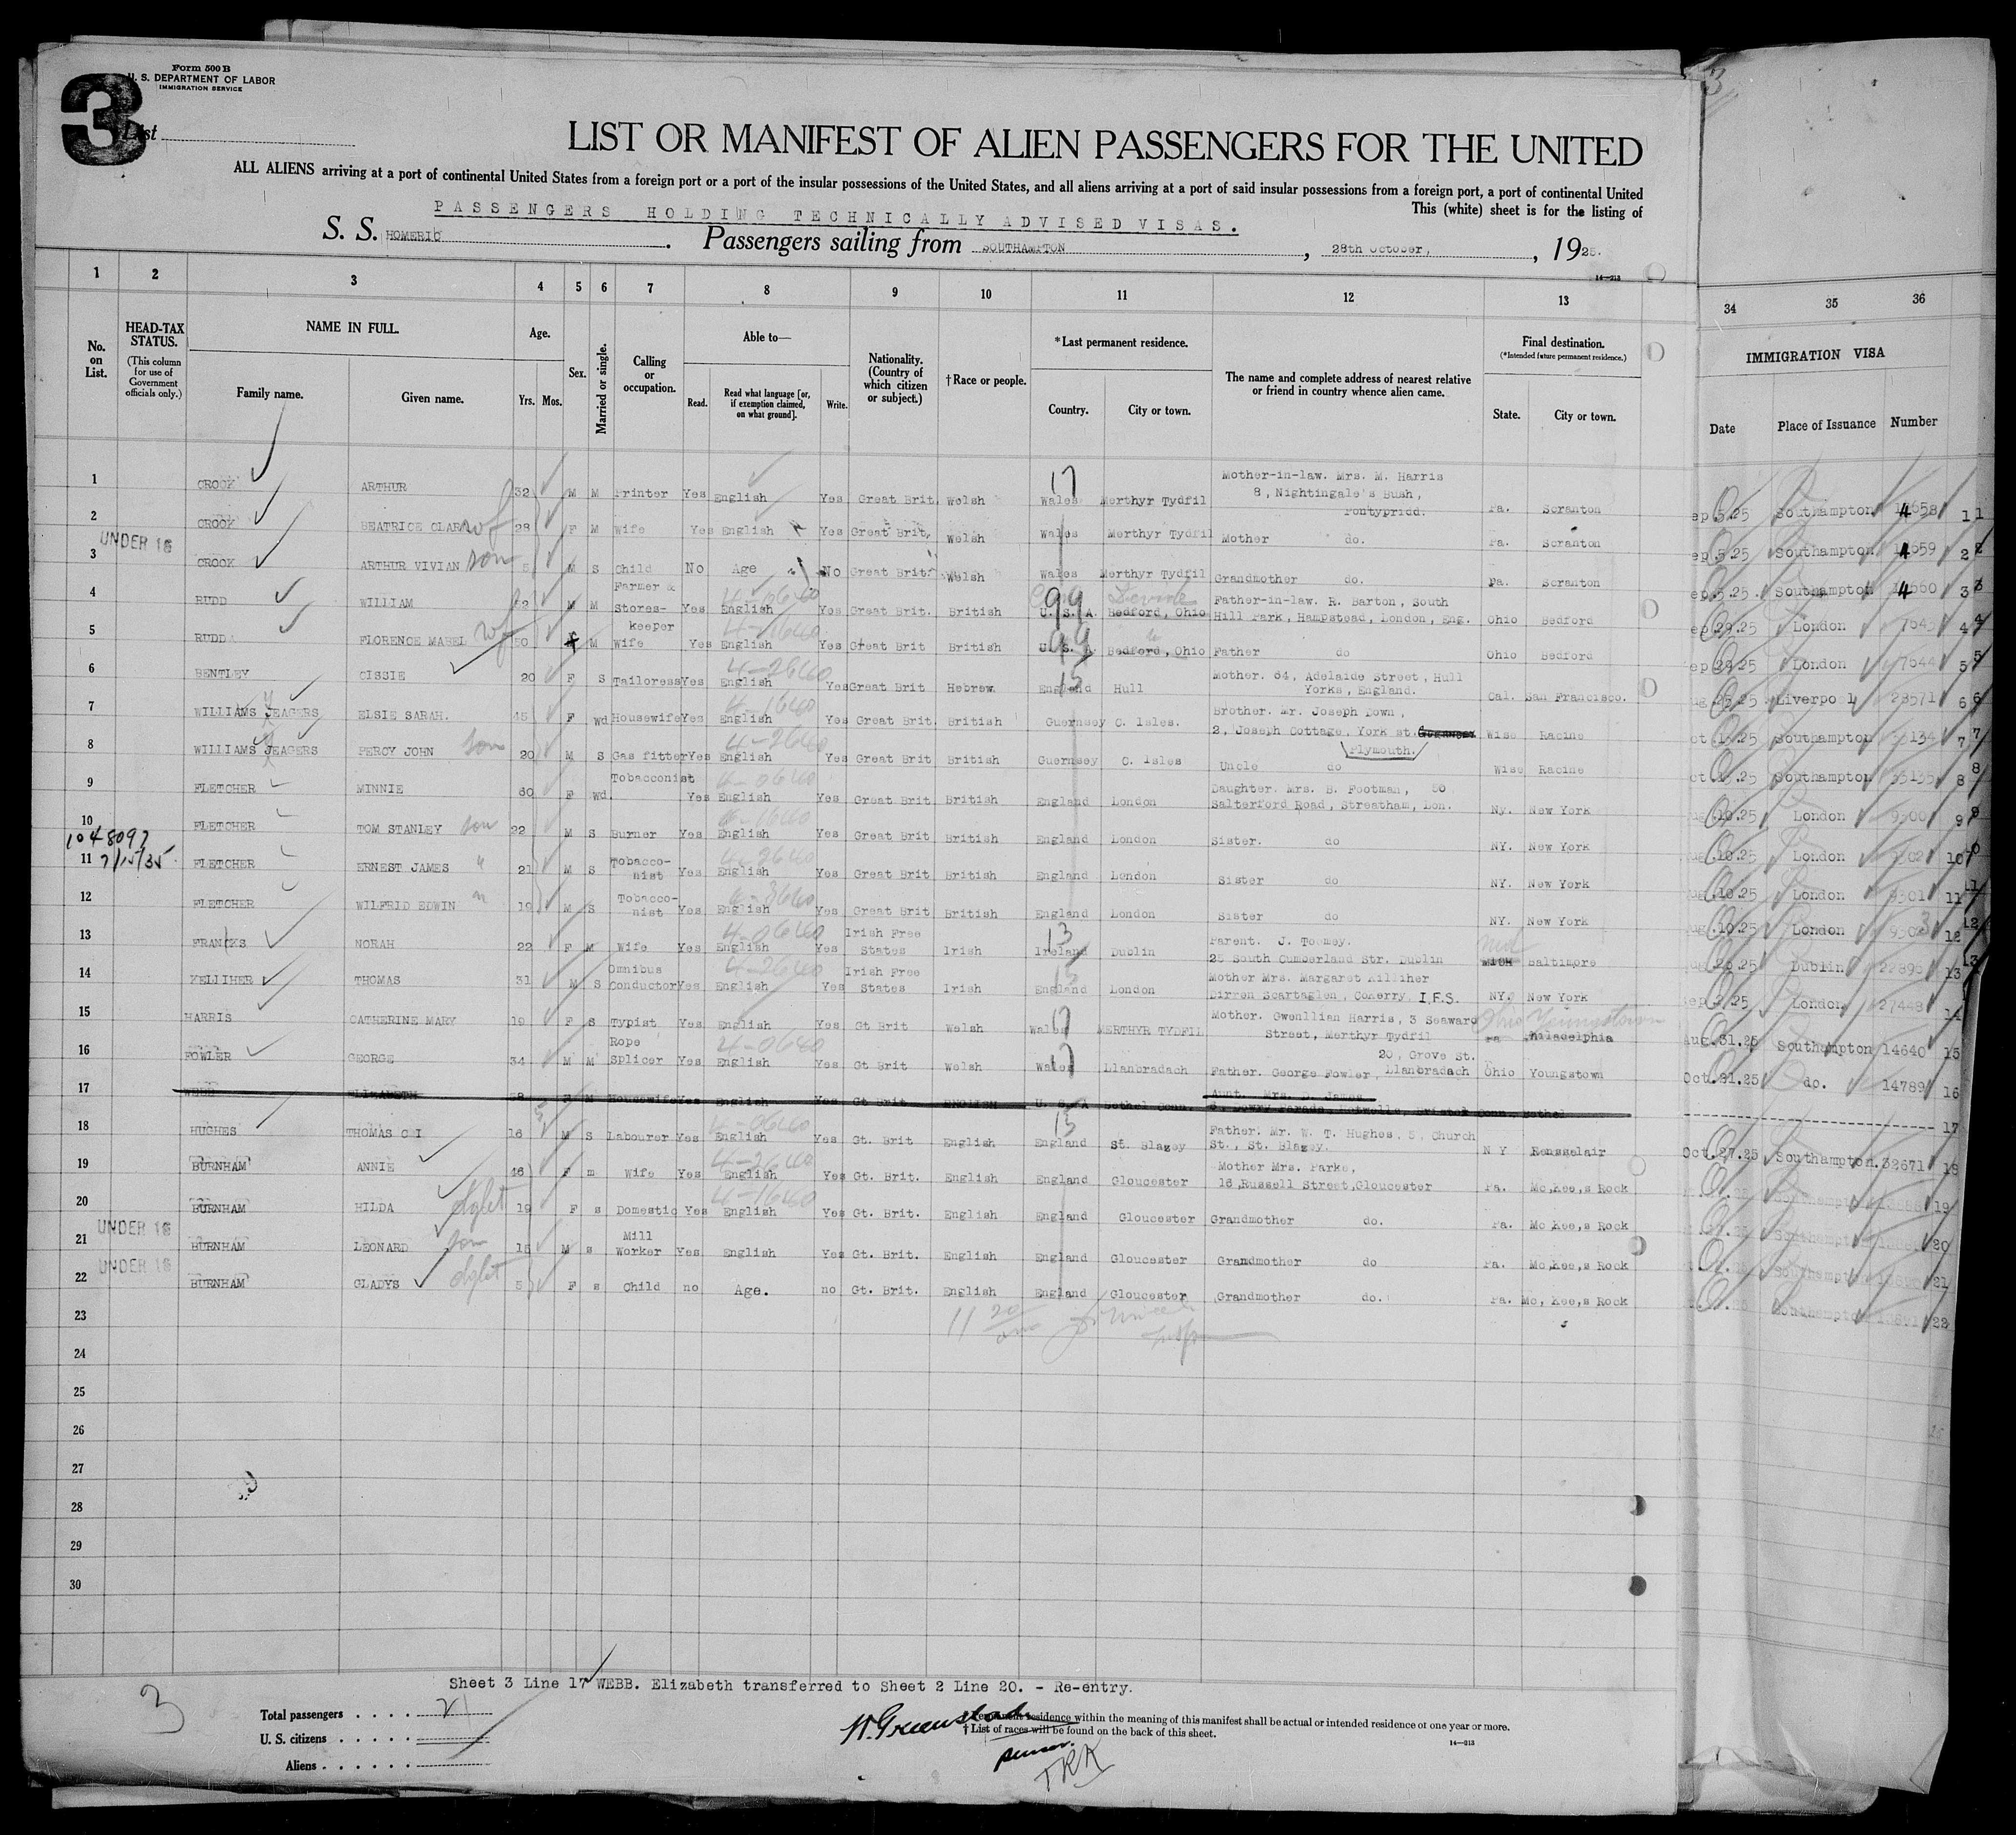 3
Form 500 B
U. S. DEPARTMENT OF LABOR
IMMIGRATION SERVICE
List
LIST OR MANIFEST OF ALIEN PASSENGERS FOR THE UNITED
ALL ALIENS arriving at a port of continental United States from a foreign port or a port of the insular possessions of the United States, and all aliens arriving at a port of said insular possessions from a foreign port, a port of continental United
This (white) sheet is for the listing of
PASSENGERS HOLDING TECHNICALLY ADVISED VISAS.
S. S. HOMERIC. Passengers sailing from SOUTHAMPTON, 28th October, 1925.
14-213
1 2 3 4 5 6 7 8 9 10 11 12 13 34 35 36
No. on List.
HEAD-TAX STATUS.
(This column for use of Government officials only.)
NAME IN FULL.
Family name. Given name.
Age.
Yrs. Mos.
Sex.
Married or single.
Calling or occupation.
Able to—
Read. Read what language [or, if exemption claimed, on what ground]. Write.
Nationality. (Country of which citizen or subject.)
†Race or people.
*Last permanent residence.
Country. City or town.
The name and complete address of nearest relative or friend in country whence alien came.
Final destination.
(*Intended future permanent residence.)
State. City or town.
IMMIGRATION VISA
Date Place of Issuance Number
1 CROOK ARTHUR 32 M M Printer Yes English Yes Great Brit. Welsh Wales Merthyr Tydfil Mother-in-law. Mrs. M. Harris 8, Nightingale's Bush, Pontypridd. Pa. Scranton ep.5.25 Southampton 1
2 CROOK BEATRICE CLARA wf 28 F M Wife Yes English Yes Great Brit. Welsh Wales Merthyr Tydfil Mother do. Pa. Scranton ep.5.25 Southampton 2
UNDER 16
3 CROOK ARTHUR VIVIAN son 5 M S Child No Age No Great Brit. Welsh Wales Merthyr Tydfil Grandmother do. Pa. Scranton ep.5.25 Southampton 3
4 RUDD WILLIAM 52 M M Farmer & Stores-keeper Yes English Yes Great Brit. British U.S.A. Bedford, Ohio Father-in-law. R. Barton, South Hill Park, Hampstead, London, Eng. Ohio Bedford ep.29.25 London 7643 4
5 RUDD FLORENCE MABEL wf 50 F M Wife Yes English Yes Great Brit British U.S.A. Bedford, Ohio Father do Ohio Bedford ep.29.25 London 7644 5
6 BENTLEY CISSIE 20 F S Tailoress Yes English Yes Great Brit Hebrew England Hull Mother. 64, Adelaide Street, Hull Yorks, England. Cal. San Francisco. Liverpool 28571 6
7 WILLIAMS JEAGERS ELSIE SARAH. 45 F Wd Housewife Yes English Yes Great Brit. British Guernsey C. Isles. Brother. Mr. Joseph Down, 2, Joseph Cottage, York st. Plymouth. Wise Racine Southampton 7
8 WILLIAMS JEAGERS PERCY JOHN son 20 M S Gas fitter Yes English Yes Great Brit British Guernsey C. Isles Uncle do Wise Racine Southampton 8
9 FLETCHER MINNIE 60 F Wd. Tobacconist Yes English Yes Great Brit British England London Daughter. Mrs. B. Footman, 50 Salterford Road, Streatham, Lon. Ny. New York ug.10.25 London 9
10 FLETCHER TOM STANLEY son 22 M S Burner Yes English Yes Great Brit British England London Sister. do NY. New York ug.10.25 London 10
1048092
7/15/35
11 FLETCHER ERNEST JAMES " 21 M S Tobacco-nist Yes English Yes Great Brit British England London Sister do NY. New York ug.10.25 London 9501 11
12 FLETCHER WILFRID EDWIN " 19 M S Tobacco-nist Yes English Yes Great Brit British England London Sister do NY. New York ug.10.25 London 12
13 FRANCKS NORAH 22 F M Wife Yes English Yes Irish Free States Irish Ireland Dublin Parent. J. Toomey. 25 South Cumberland Str. Dublin Md Baltimore Dublin 22896 13
14 KELLIHER THOMAS 31 M S Omnibus Conductor Yes English Yes Irish Free States Irish England London Mother Mrs. Margaret Killiher Dirren Scartaglen, Conerry. I.F.S. NY. New York London 27448 14
15 HARRIS CATHERINE MARY 19 F S Typist Yes English Yes Gt Brit Welsh Wales MERTHYR TYDFIL Mother. Gwenllian Harris, 3 Seaward Street, Merthyr Tydfil Pa Philadelphia Ohio Youngstown Aug.31.25 Southampton 14640 15
16 FOWLER GEORGE 34 M M Rope Splicer Yes English Yes Gt Brit Welsh Wales Llanbradach Father. George Fowler, 20, Grove St. Llanbradach Ohio Youngstown Oct.21.25 do. 14789 16
17 WEBB ELIZABETH 58 F M Housewife Yes English Yes Gt Brit ENGLISH U.S.A Bethel Conn. Aunt. Mrs. D. James Bristol Conn. Bethel 17
18 HUGHES THOMAS C I 16 M S Labourer Yes English Yes Gt. Brit English England St. Blazey Father. Mr. W. T. Hughes, 5, Church St., St. Blazey. N Y Rensselair Oct.27.25 Southampton. 32671 18
19 BURNHAM ANNIE 46 F m Wife Yes English Yes Gt. Brit. English England Gloucester Mother Mrs. Parke, 16, Russell Street, Gloucester Pa. Mc, Kee,s Rock 19
20 BURNHAM HILDA dght 19 F s Domestic Yes English Yes Gt. Brit. English England Gloucester Grandmother do. Pa. Mc Kee,s Rock 20
UNDER 16
21 BURNHAM LEONARD son 15 M s Mill Worker Yes English Yes Gt. Brit. English England Gloucester Grandmother do Pa. Mc,Kee,s Rock 21
UNDER 16
22 BURNHAM GLADYS dght 5 F s Child no Age. no Gt. Brit. English England Gloucester Grandmother do. Pa. Mc, Kee,s Rock 22
23
24
25
26
27
28
29
30
Sheet 3 Line 17 WEBB. Elizabeth transferred to Sheet 2 Line 20. - Re-entry.
3
Total passengers . . . . 21
U. S. citizens . . . . .
Aliens . . . . . .
*Permanent residence within the meaning of this manifest shall be actual or intended residence of one year or more.
†List of races will be found on the back of this sheet.
14-213